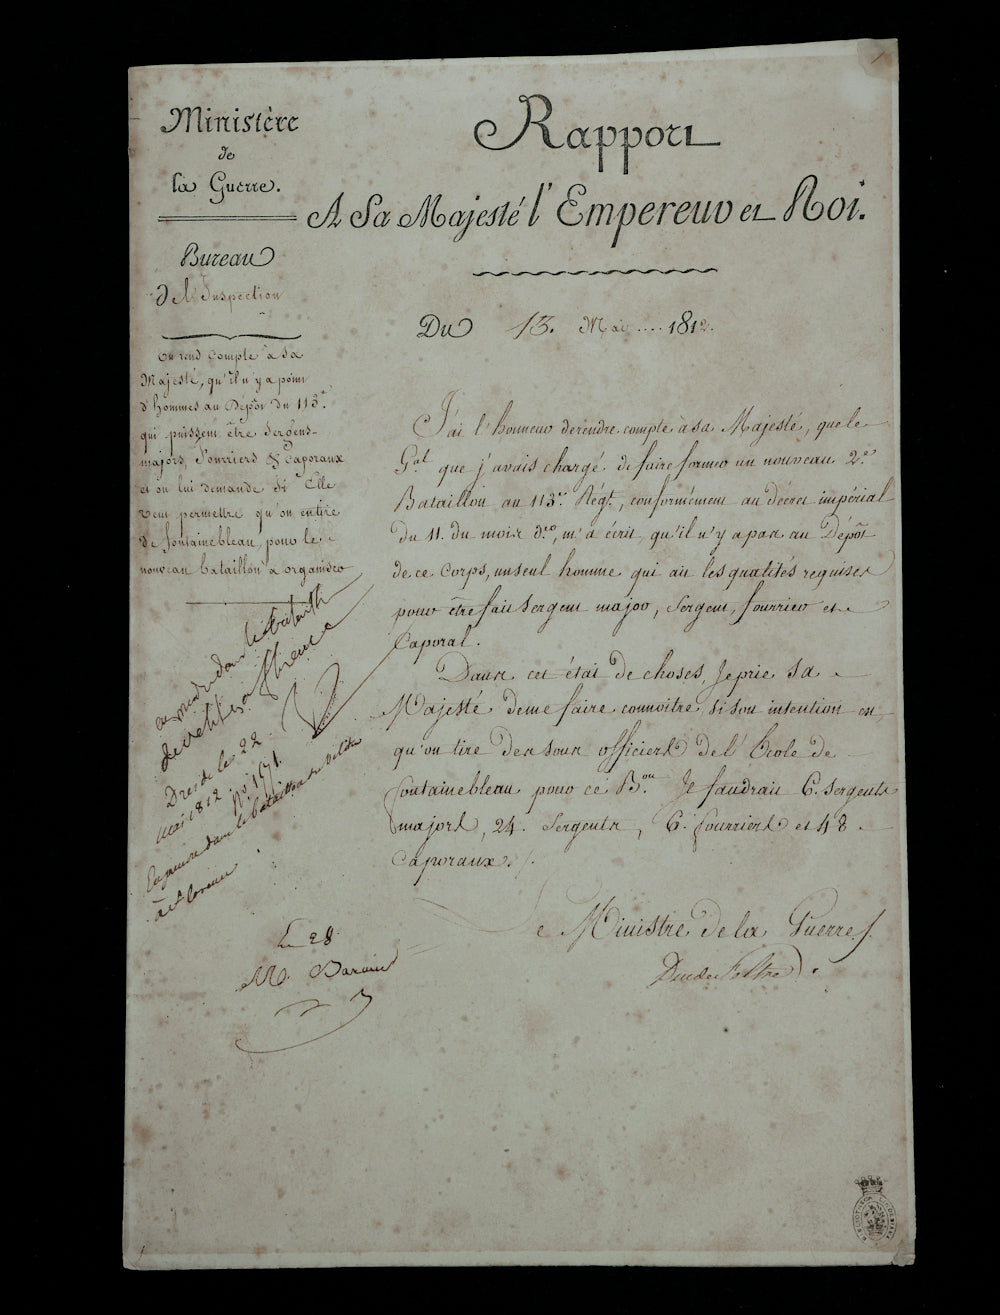 Ministère
de
la Guerre.
Bureau
de l'Inspection
On rend Compte à Sa
Majesté, qu'il n'y a point
d'hommes au Dépôt du 113e.
qui puissent être Sergens-
majors, Fourriers & Caporaux
et on lui demande Si Elle
veut permettre qu'on en tire
de fontainebleau, pour le
nouveau bataillon à organiser
Rapport
A Sa Majesté l'Empereur et Roi.
Du 13. Mai .... 1812.
J'ai l'honneur de rendre compte à sa Majesté, que le
Gal que j'avais chargé de faire former un nouveau 2e.
Bataillon au 113e. Régt., conformément au décret impérial
du 11. du mois dro, m'a écrit, qu'il n'y a pas au Dépôt
de ce Corps, un seul homme qui ait les qualités requises
pour être fait Sergent major, Sergent, fourrier et
Caporal.
Dans cet état de choses, Je prie Sa
Majesté de me faire connoitre, si son intention est
qu'on tire des sous officiers de l'École de
fontainebleau pour ce Bon. Je faudrait 6. Sergents
majors, 24. Sergents, 6. fourriers et 48
Caporaux./.
Le Ministre de la Guerre/.
Duc de Feltre
en prendre dans le bataillon
de velites a florence
Dresde le 22
mai 1812
No. 1571.
En prendre dans le bataillon de Velites
Le 28
M. Barnier
BIBLIOTHECA LINDESIANA